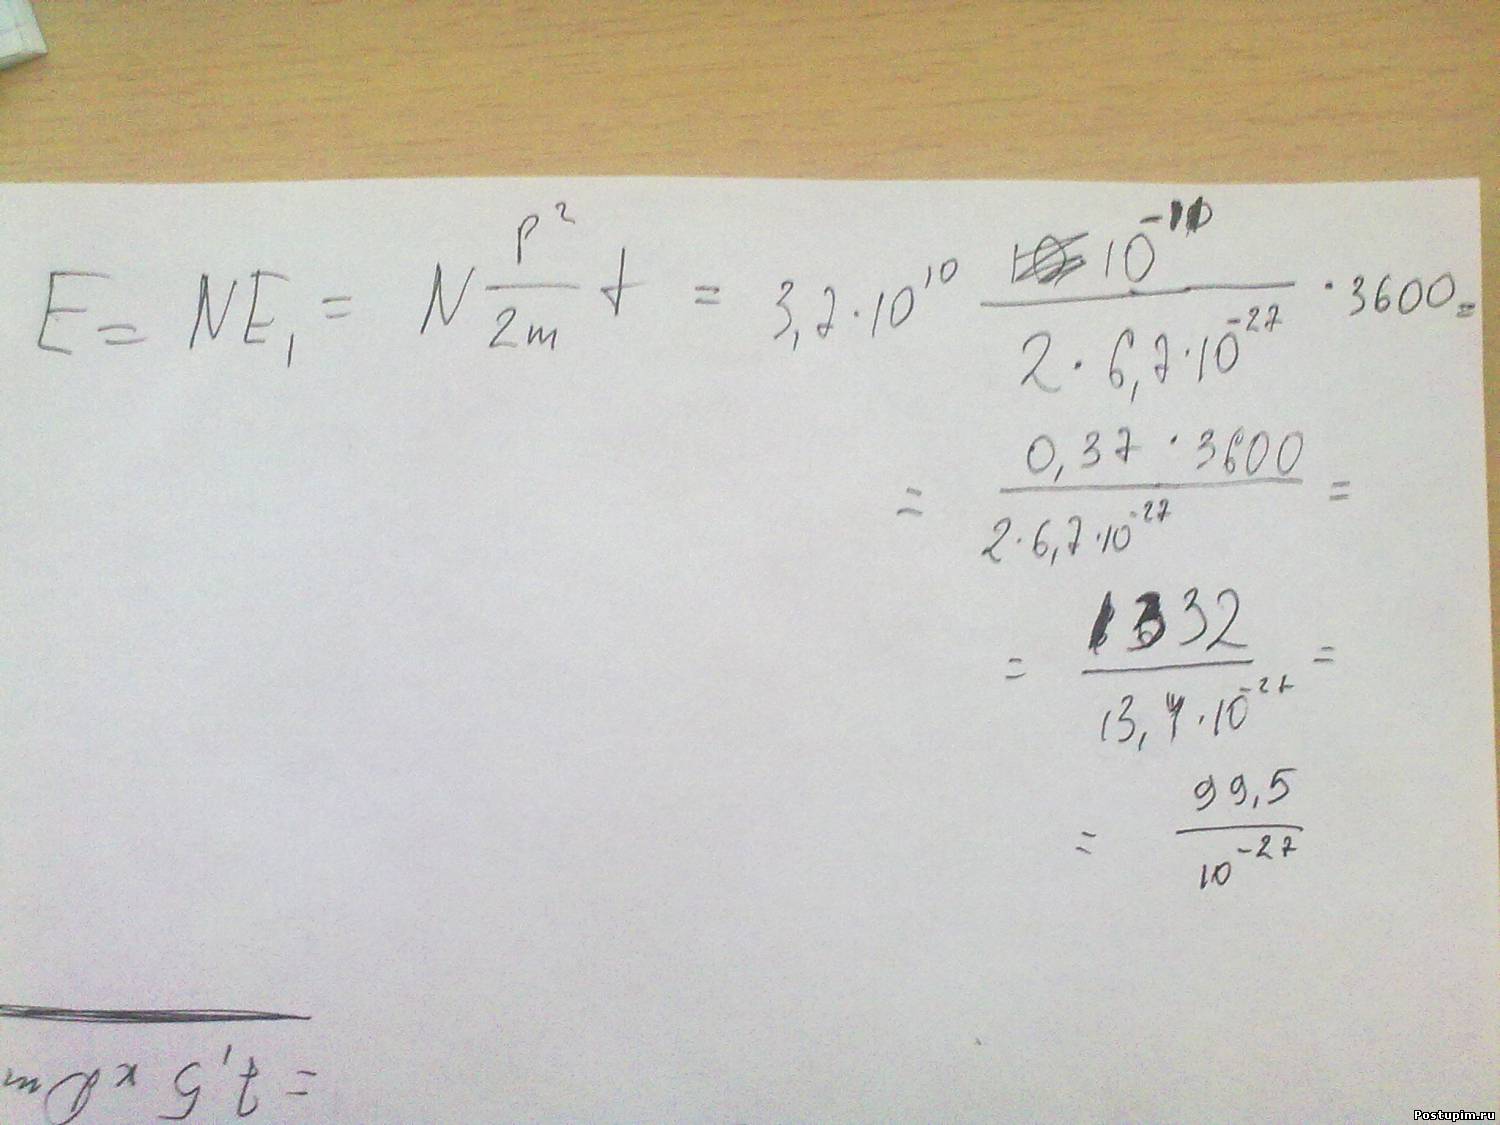 E = NE₁ = N p²/2m t = 3,7·10¹⁰ 10⁻¹⁰/2·6,7·10⁻²⁷ · 3600 =
= 0,37·3600/2·6,7·10⁻²⁷ =
= 1332/13,4·10⁻²⁷ =
= 99,5/10⁻²⁷
= 7,5 кДж
Postupim.ru